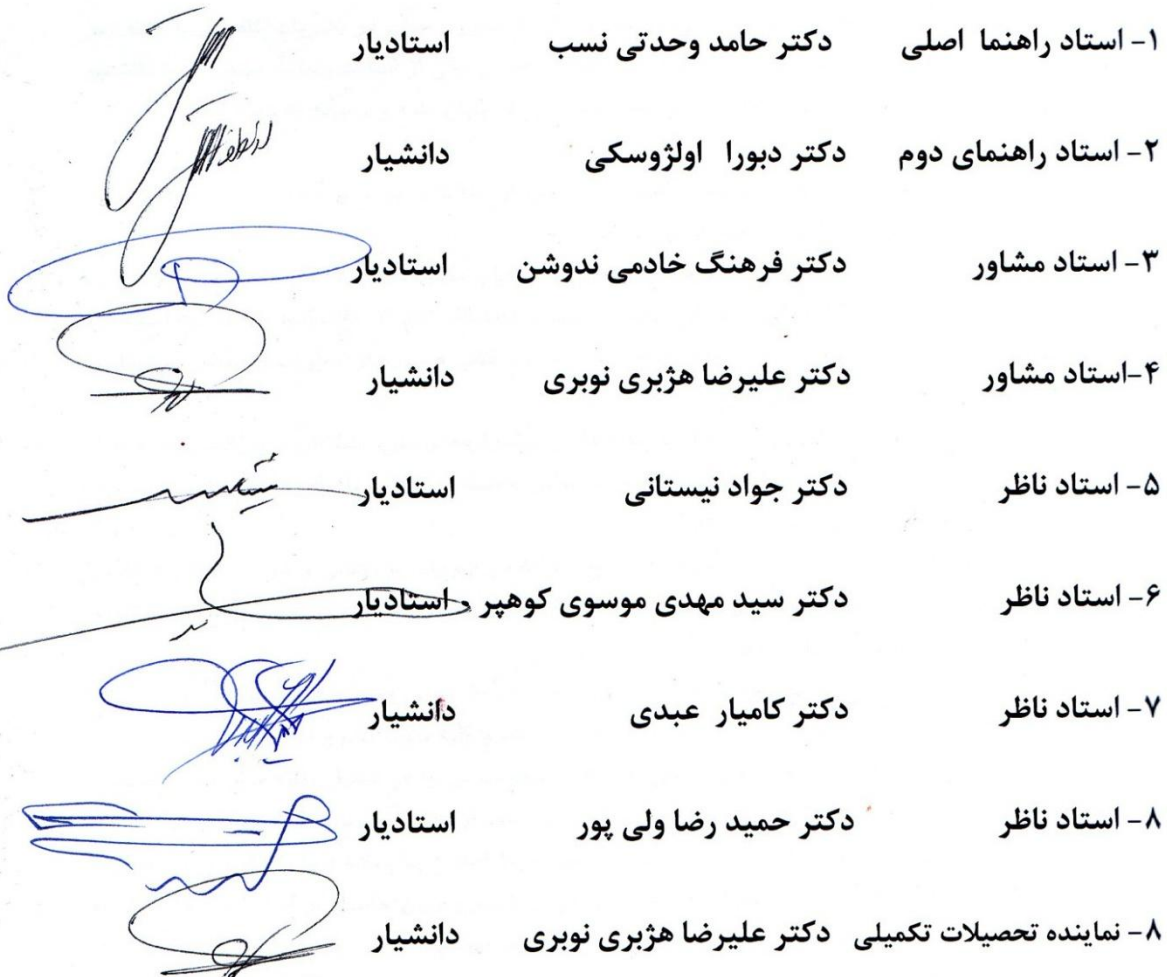 ۱- استاد راهنما اصلی دکتر حامد وحدتی نسب استادیار
۲- استاد راهنمای دوم دکتر دبورا اولژوسکی دانشیار
۳- استاد مشاور دکتر فرهنگ خادمی ندوشن استادیار
۴-استاد مشاور دکتر علیرضا هژبری نوبری دانشیار
۵- استاد ناظر دکتر جواد نیستانی استادیار
۶- استاد ناظر دکتر سید مهدی موسوی کوهپر استادیار
۷- استاد ناظر دکتر کامیار عبدی دانشیار
۸- استاد ناظر دکتر حمید رضا ولی پور استادیار
۸- نماینده تحصیلات تکمیلی دکتر علیرضا هژبری نوبری دانشیار